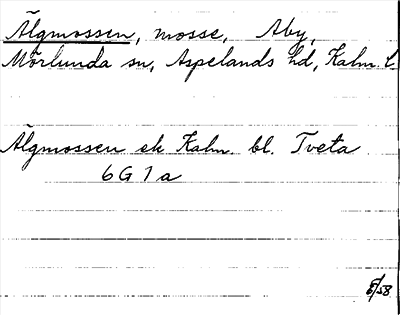 Älgmossen, mosse, Åby,
Mörlunda sn, Aspelands hd, Kalm. l.
Älgmossen ek Kalm. bl. Tveta
6 G 1 a
5/58